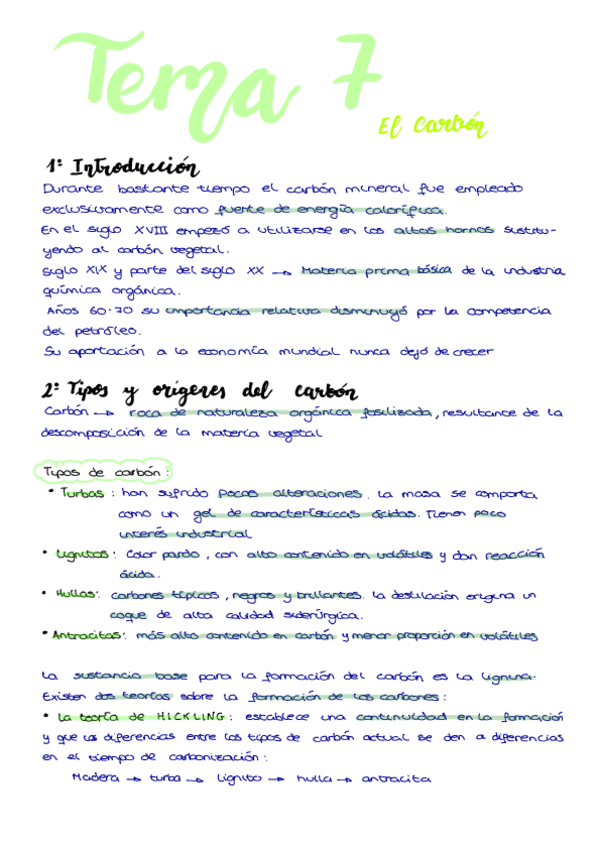 Tema 7
El Carbón
1º Introducción
Durante bastante tiempo el carbón mineral fue empleado
exclusivamente como fuente de energía calorífica.
En el siglo XVIII empezó a utilizarse en los altos hornos sustitu-
yendo al carbón vegetal.
Siglo XIX y parte del siglo XX → Materia prima básica de la industria
química orgánica.
Años 60-70 su importancia relativa disminuyó por la competencia
del petróleo.
Su aportación a la economía mundial nunca dejó de crecer
2º Tipos y orígenes del carbón
Carbón → roca de naturaleza orgánica fosilizada, resultante de la
descomposición de la materia vegetal
Tipos de carbón:
• Turbas: han sufrido pocas alteraciones. La masa se comporta
como un gel de características ácidas. Tienen poco
interés industrial
• Lignitos: Color pardo, con alto contenido en volátiles y dan reacción
ácida.
• Hullas: carbones típicos, negros y brillantes. La destilación origina un
coque de alta calidad siderúrgica.
• Antracitas: más alto contenido en carbón y menor proporción en volátiles
La sustancia base para la formación del carbón es la lignina.
Existen dos teorías sobre la formación de los carbones:
• La teoría de HICKLING: establece una continuidad en la formación
y que las diferencias entre los tipos de carbón actual se den a diferencias
en el tiempo de carbonización:
Madera → turba → lignito → hulla → antracita